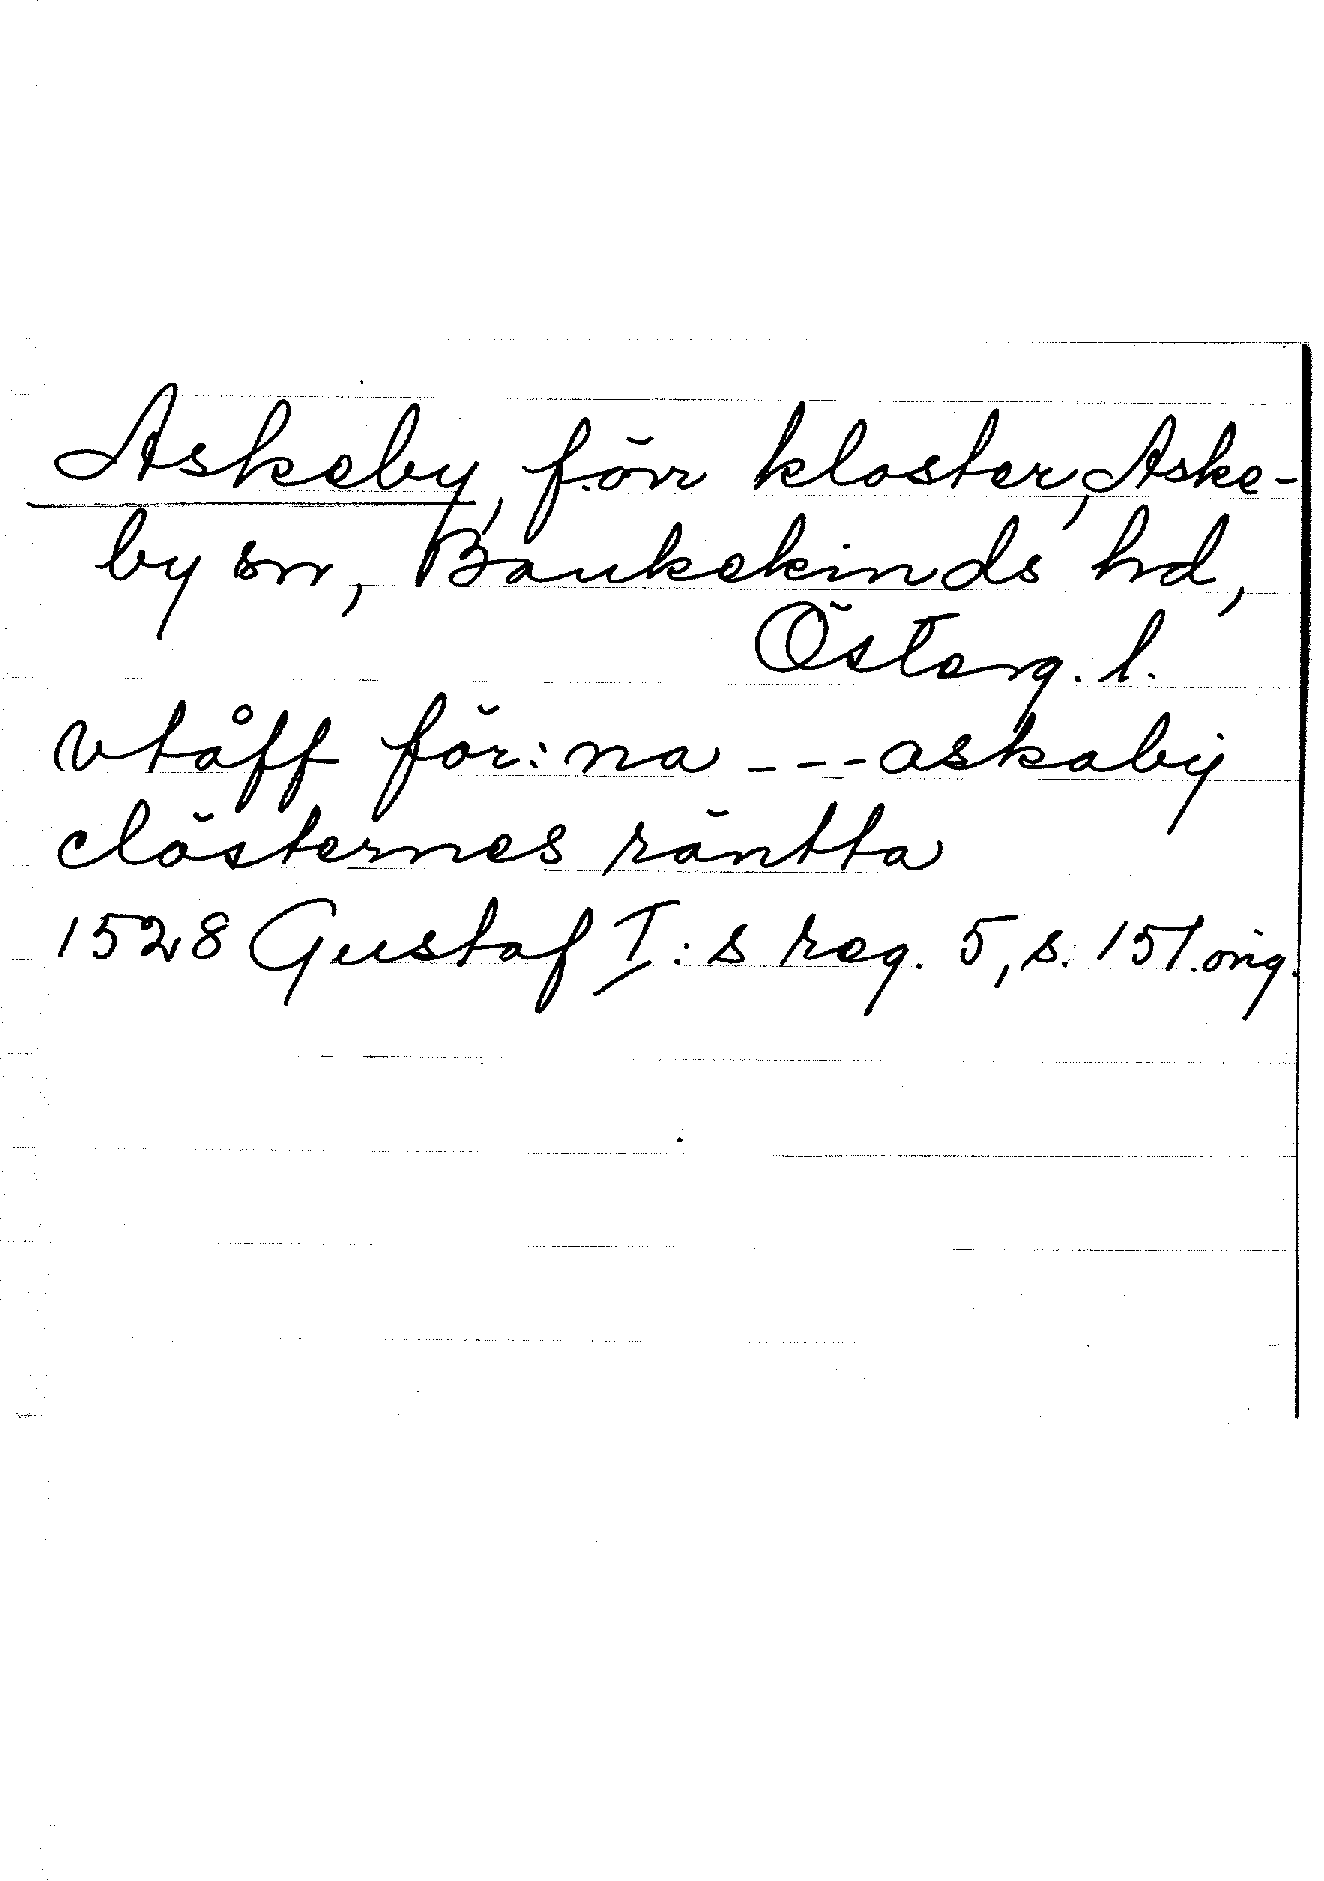 Askeby, förr kloster, Aske-
by sn, Bankekinds hd,
Österg. l.
vtåff för:na --- askaby
clösternes räntta
1528 Gustaf I:s reg. 5, s. 151. orig.